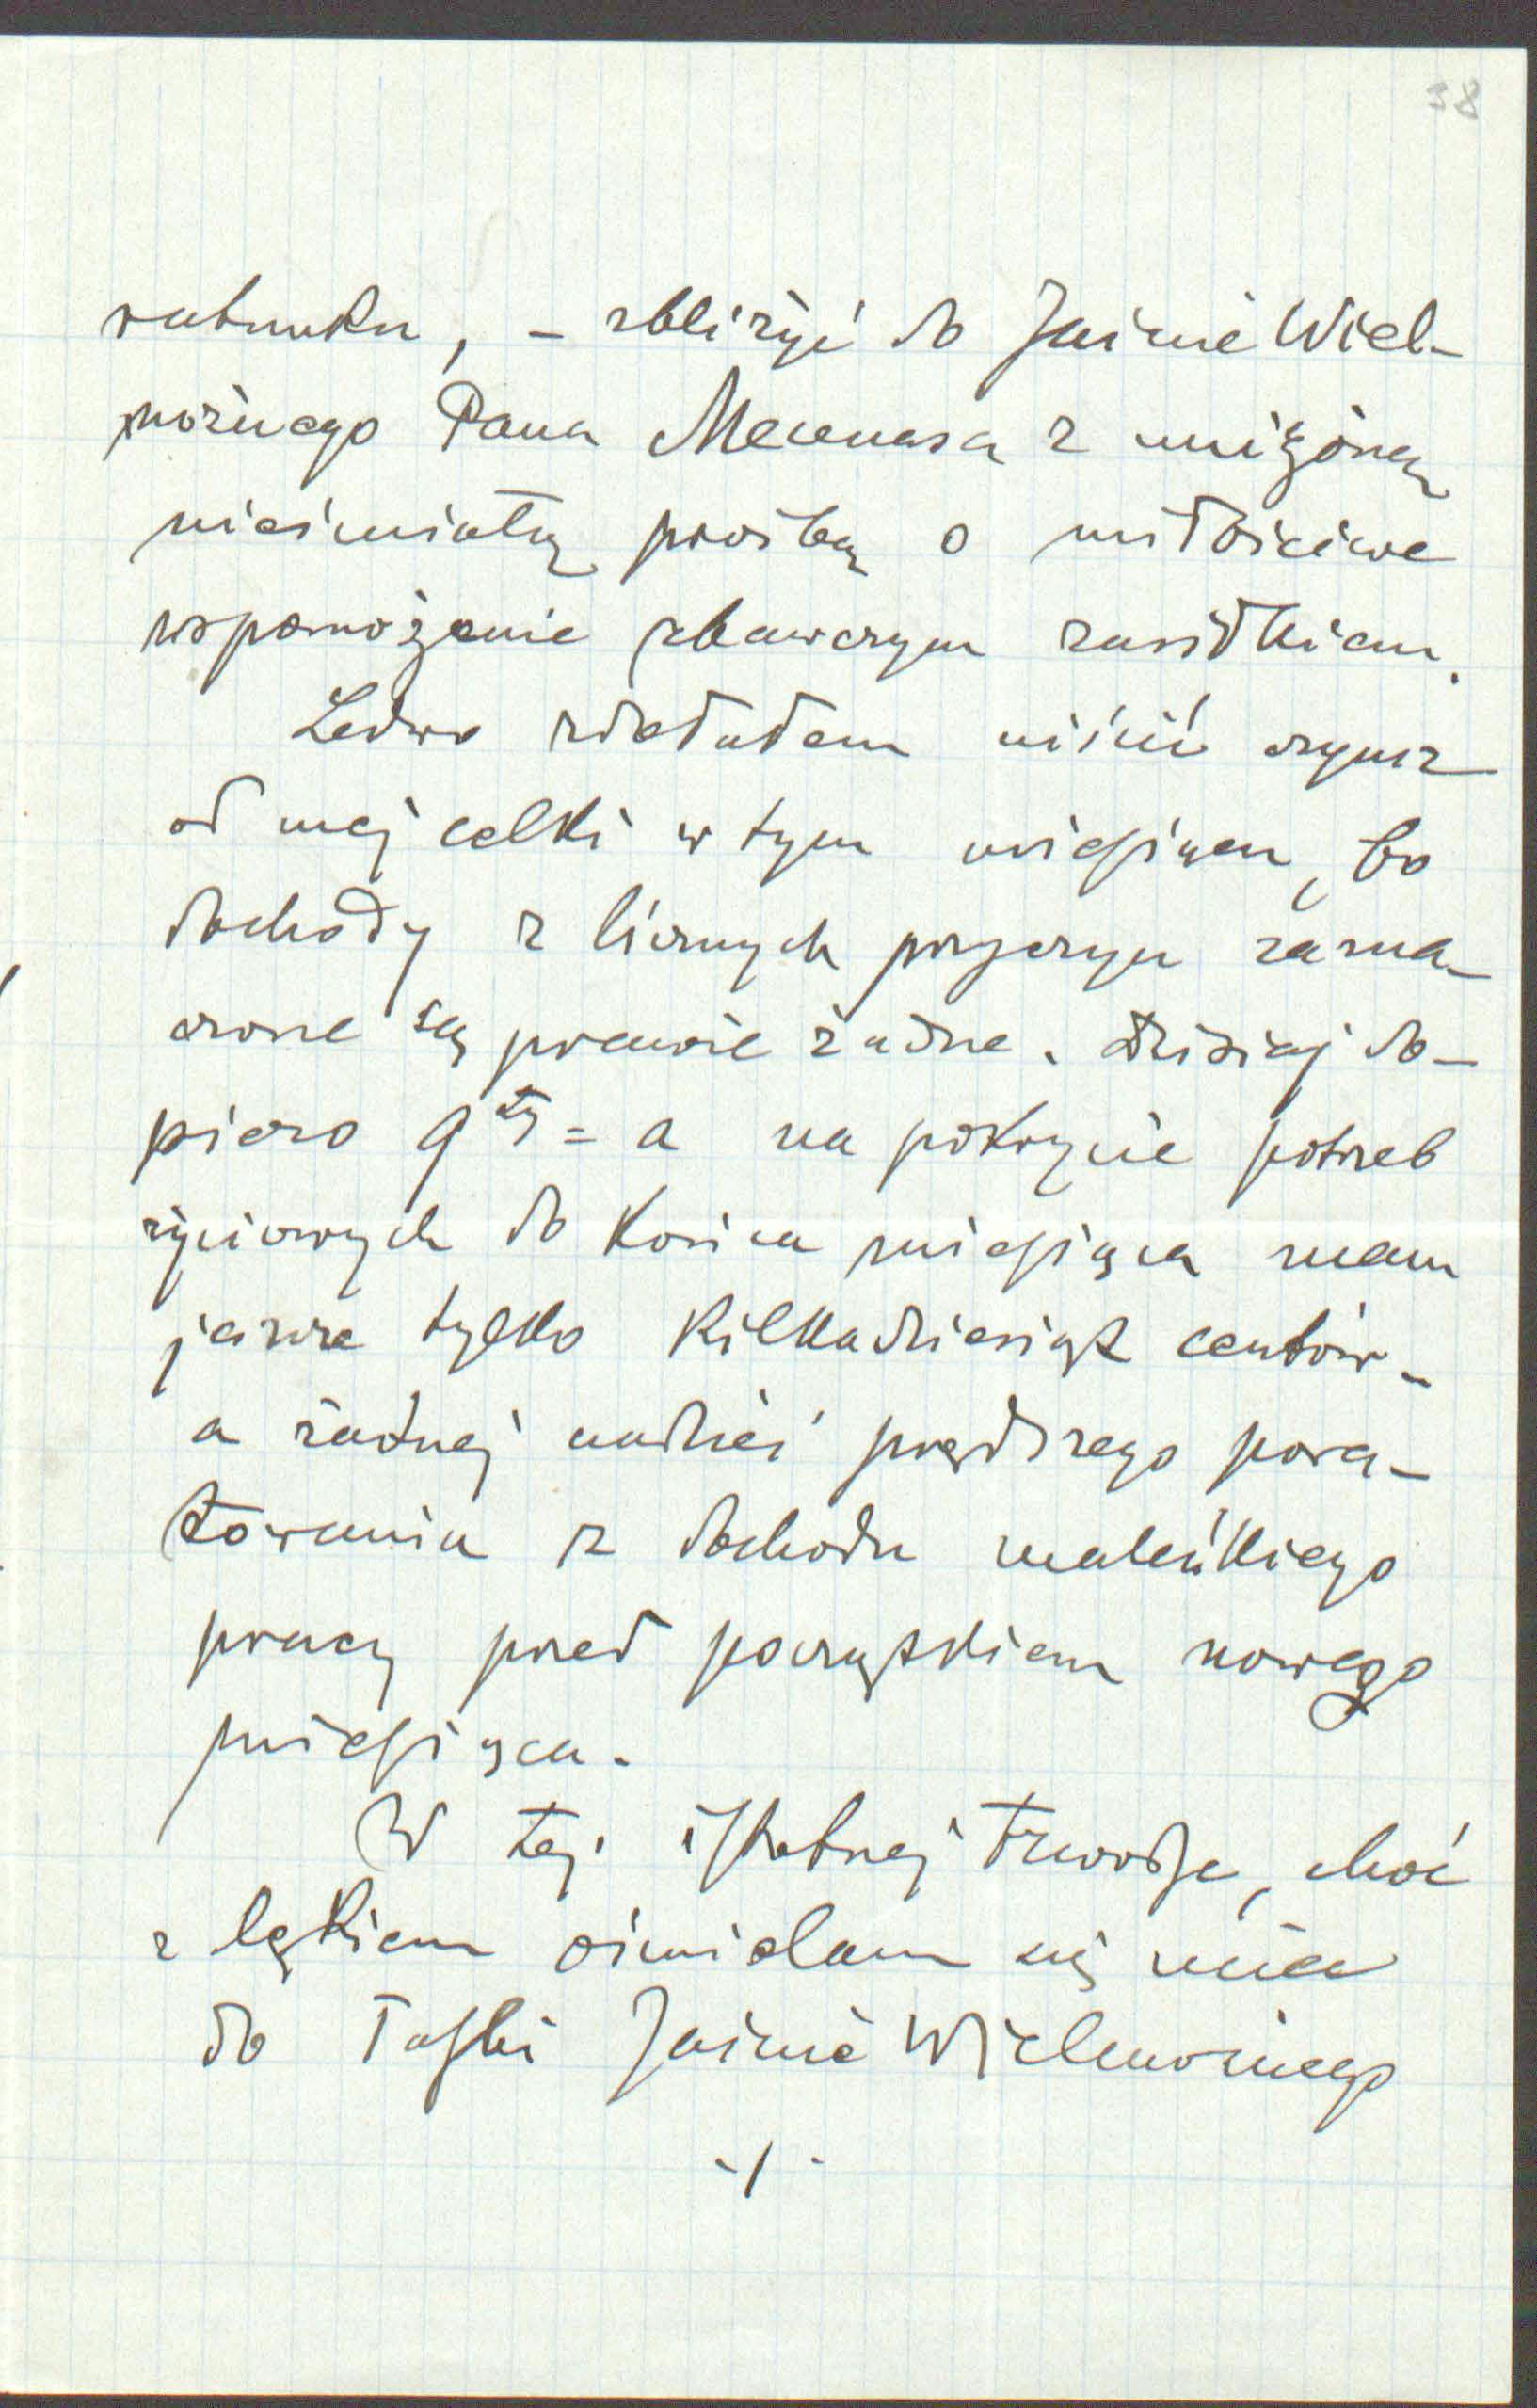 38
ratunku, – zbliżyć do Jaśnie Wiel-
możnego Pana Mecenasa z uniżoną
nieśmiałą prośbą o miłościwe
wspomożenie zbawczym zasiłkiem.
Ledwo zdołałem uiścić czynsz
od mej celki w tym miesiącu, bo
dochody z licznych przyczyn
są prawie żadne. Dzisiaj do-
piero 9ty = a na pokrycie potrzeb
życiowych do końca miesiąca mam
jeszcze tylko kilkadziesiąt centów –
a żadnej nadziei prędszego pora-
towania z dochodu maleńkiego
pracy przed początkiem nowego
miesiąca.
W tej istotnej trwodze, choć
z lękiem ośmielam się uciec
do łaski Jaśnie Wielmożnego
·/·